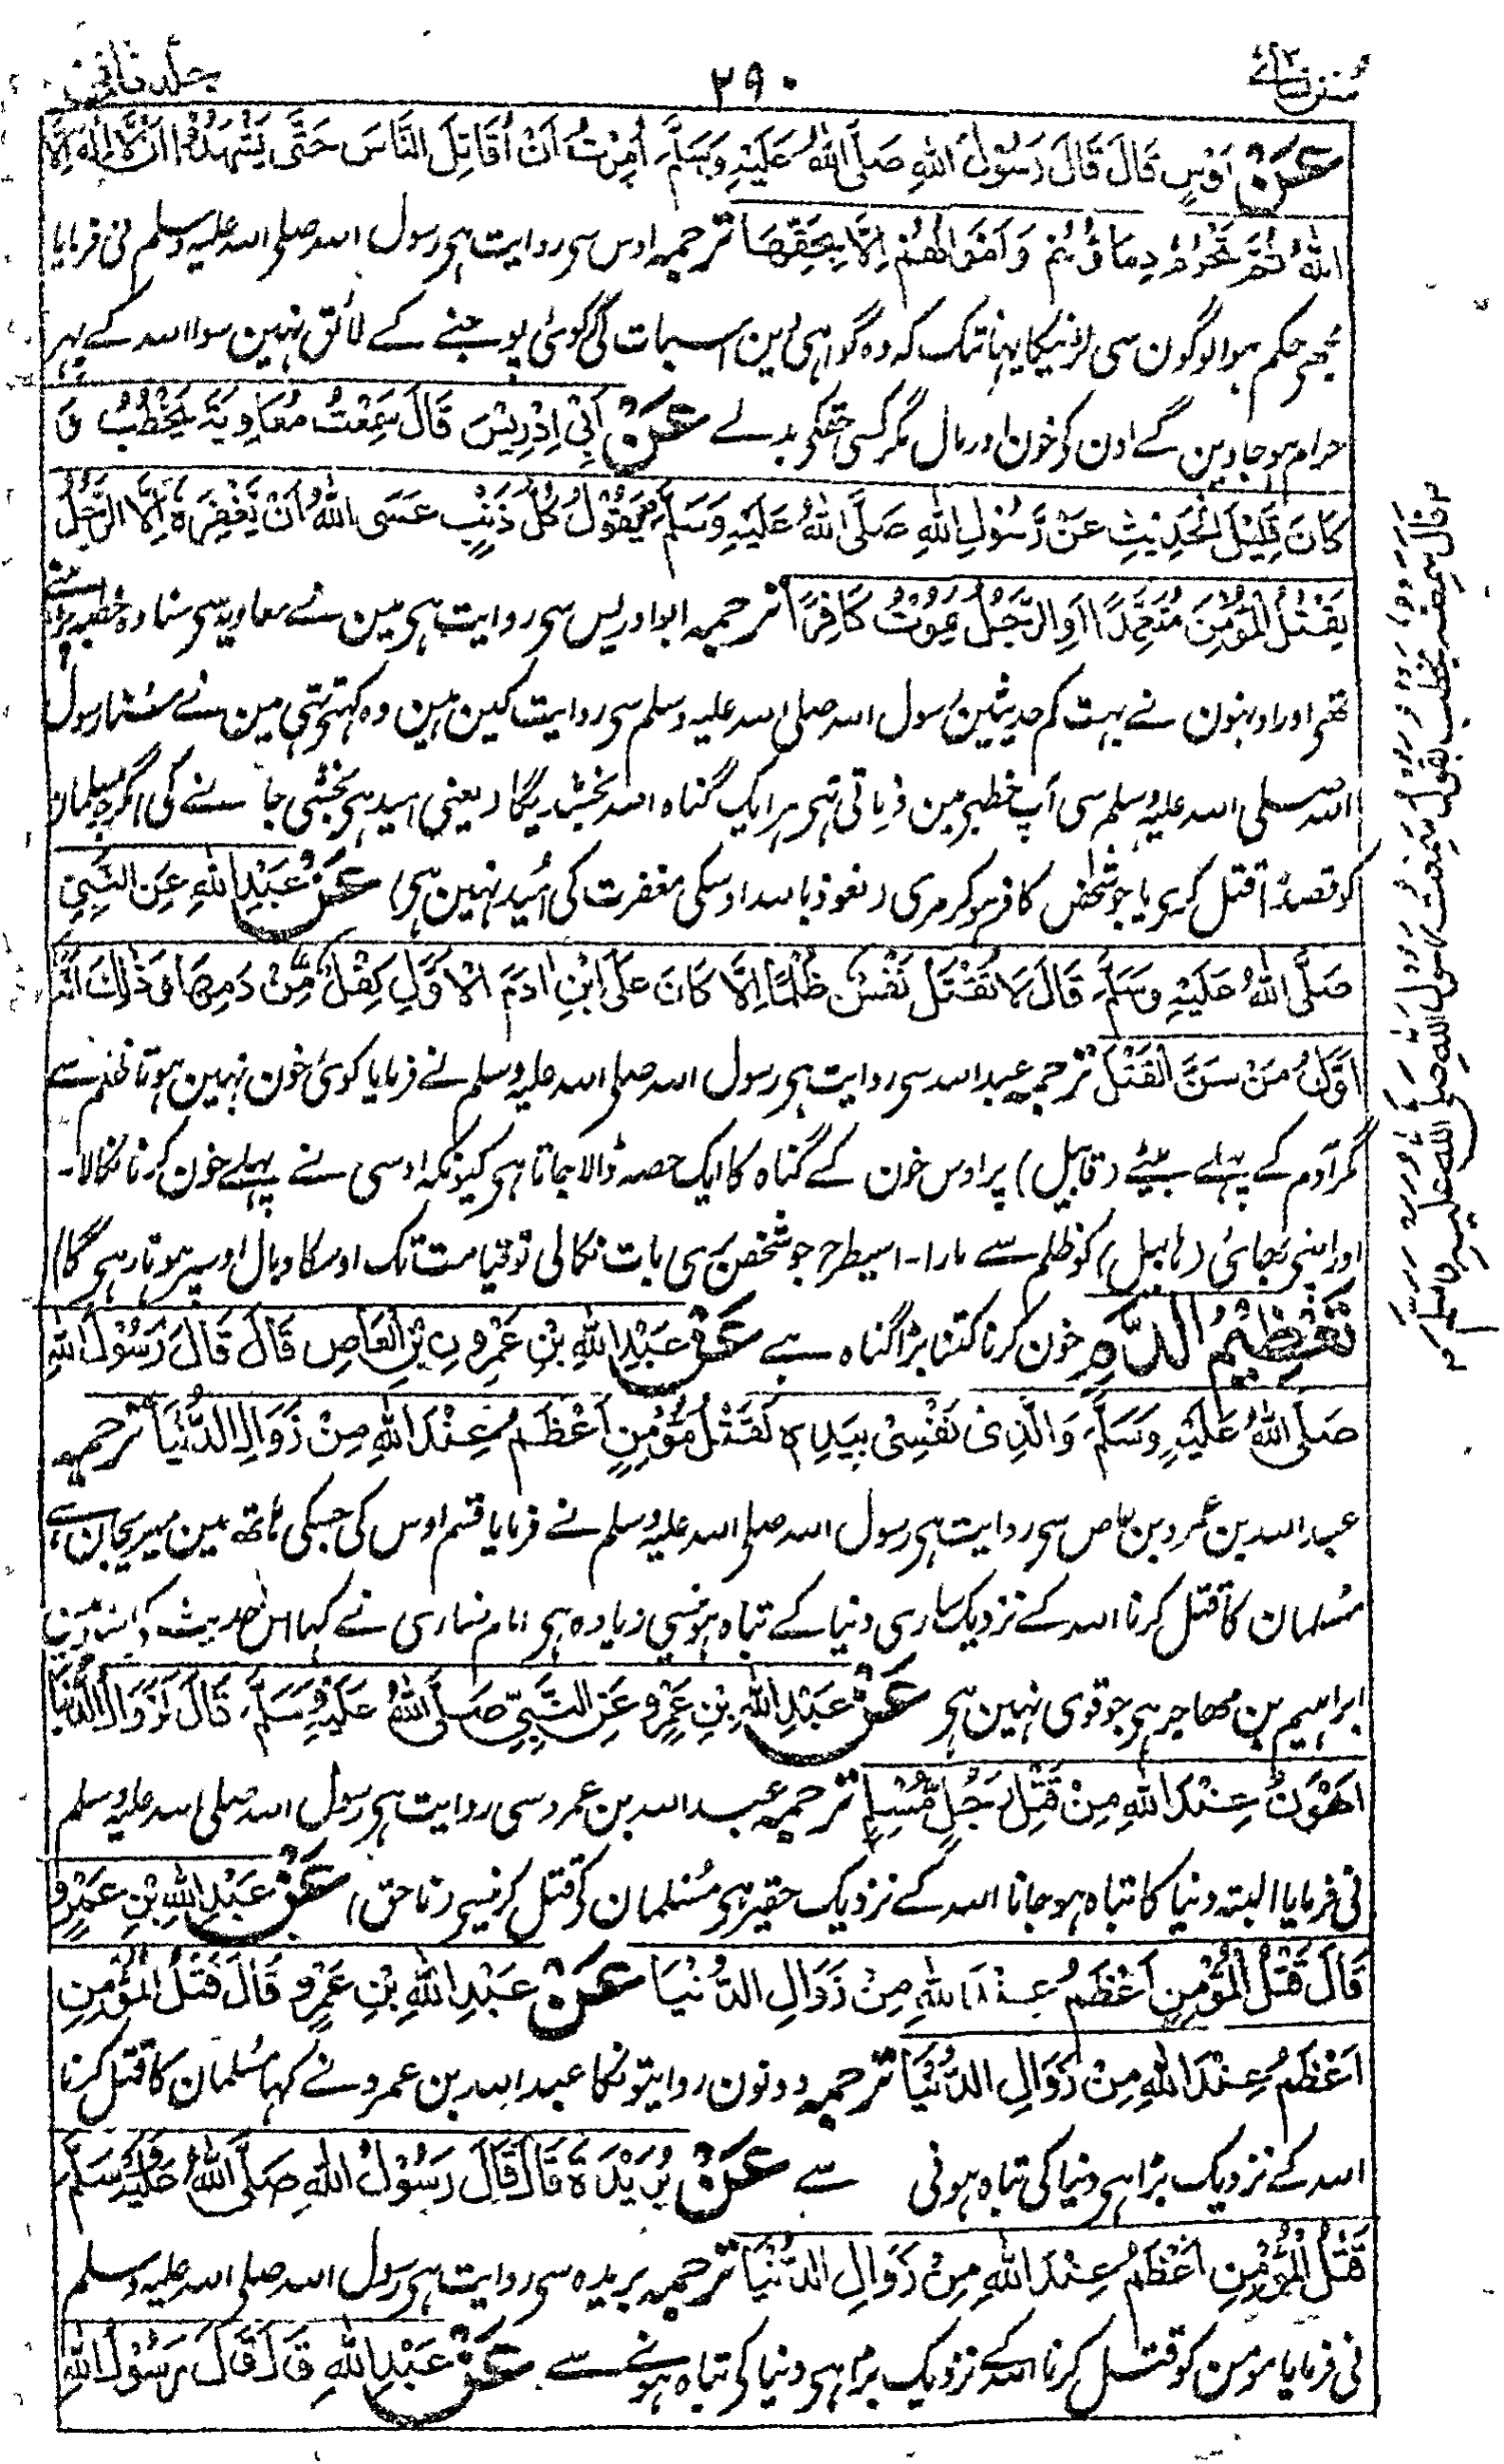 سنن نسائے
۲۹۰
جلد ثانی
عَنْ اَوْسٍ قَالَ قَالَ رَسُوْلُ اللهِ صَلَّى اللهُ عَلَيْهِ وَسَلَّمَ اُمِرْتُ اَنْ اُقَاتِلَ النَّاسَ حَتّٰى يَشْهَدُوْا اَنْ لَّا اِلٰهَ اِلَّا
اللهُ ثُمَّ تَحْرُمُ دِمَاؤُهُمْ وَ اَمْوَالُهُمْ اِلَّا بِحَقِّهَا ترجمہ اوس سی روایت ہی رسول اللہ صلی اللہ علیہ وسلم نی فرمایا
مجھی حکم ہوا لوگون سی لڑنیکا یہانتک کہ وہ گواہی دین اسبات کی کوئی پوجنے کے لائق نہین سوا اللہ کے پہر
حرام ہو جاوین گے اون کی خون اور مال مگر کسی حقکی بدلے عَنْ اَبِيْ اِدْرِيْسَ قَالَ سَمِعْتُ مُعَاوِيَةَ يَخْطُبُ وَ
كَانَ قَلِيْلَ الْحَدِيْثِ عَنْ رَسُوْلِ اللهِ صَلَّى اللهُ عَلَيْهِ وَسَلَّمَ يَقُوْلُ كُلُّ ذَنْبٍ عَسَى اللهُ اَنْ يَّغْفِرَهٗ اِلَّا الرَّجُلُ
يَقْتُلُ الْمُؤْمِنَ مُتَعَمِّدًا اَوِ الرَّجُلُ يَمُوْتُ كَافِرًا ترجمہ ابو ادریس سی روایت ہی مین نے معاویہ سی سنا وہ خطبہ پڑہتے
تھی اور اونہون نے بہت کم حدیثین رسول اللہ صلی اللہ علیہ وسلم سی روایت کین ہین وہ کہتی تہی مین نے سنا رسول
اللہ صلی اللہ علیہ وسلم سی آپ خطبی مین فرماتی تہی ہر ایک گناہ اللہ بخش دیگا (یعنی امید ہی بخشی جانے کی) مگر جو مسلمان
کو قصدًا قتل کری یا جو شخص کافر ہو کر مری (نعوذ باللہ اوسکی مغفرت کی امید نہین ہی) عَنْ عَبْدِ اللهِ عَنِ النَّبِيِّ
صَلَّى اللهُ عَلَيْهِ وَسَلَّمَ قَالَ لَا تُقْتَلُ نَفْسٌ ظُلْمًا اِلَّا كَانَ عَلَى ابْنِ اٰدَمَ الْاَوَّلِ كِفْلٌ مِّنْ دَمِهَا وَ ذٰلِكَ اَنَّهٗ
اَوَّلُ مَنْ سَنَّ الْقَتْلَ ترجمہ عبد اللہ سی روایت ہی رسول اللہ صلی اللہ علیہ وسلم نے فرمایا کوئی خون نہین ہوتا ظلم سے
مگر آدم کے پہلے بیٹے (قابیل) پر اوس خون کے گناہ کا ایک حصہ ڈالا جاتا ہی کیونکہ اوسی نے پہلے خون کرنا نکالا۔
اور اپنی بہائی (ہابیل) کو ظلم سے مارا۔ اسیطرح جو شخص بری بات نکالی تو قیامت تک اوسکا وبال اوسپر ہوتا رہی گا)
تَعْظِيْمُ الدَّمِ خون کرنا کتنا بڑا گناہ ہے عَنْ عَبْدِ اللهِ بْنِ عَمْرِو بْنِ الْعَاصِ قَالَ قَالَ رَسُوْلُ اللهِ
صَلَّى اللهُ عَلَيْهِ وَسَلَّمَ وَالَّذِيْ نَفْسِيْ بِيَدِهٖ لَقَتْلُ مُؤْمِنٍ اَعْظَمُ عِنْدَ اللهِ مِنْ زَوَالِ الدُّنْيَا ترجمہ
عبد اللہ بن عمرو بن عاص سی روایت ہی رسول اللہ صلی اللہ علیہ وسلم نے فرمایا قسم اوس کی جسکی ہاتھ مین میری جان ہے
مسلمان کا قتل کرنا اللہ کے نزدیک ساری دنیا کے تباہ ہونیسی زیادہ ہی امام نسائی نے کہا اس حدیث کی اسناد مین
ابراہیم بن مہاجر ہی جو قوی نہین ہی عَنْ عَبْدِ اللهِ بْنِ عَمْرٍو عَنِ النَّبِيِّ صَلَّى اللهُ عَلَيْهِ وَسَلَّمَ قَالَ لَزَوَالُ الدُّنْيَا
اَهْوَنُ عِنْدَ اللهِ مِنْ قَتْلِ رَجُلٍ مُّسْلِمٍ ترجمہ عبد اللہ بن عمرو سی روایت ہی رسول اللہ صلی اللہ علیہ وسلم
نی فرمایا البتہ دنیا کا تباہ ہو جانا اللہ کے نزدیک حقیر ہی مسلمان کی قتل کرنیسی (ناحق) عَنْ عَبْدِ اللهِ بْنِ عَمْرٍو
قَالَ قَتْلُ الْمُؤْمِنِ اَعْظَمُ عِنْدَ اللهِ مِنْ زَوَالِ الدُّنْيَا عَنْ عَبْدِ اللهِ بْنِ عَمْرٍو قَالَ قَتْلُ الْمُؤْمِنِ
اَعْظَمُ عِنْدَ اللهِ مِنْ زَوَالِ الدُّنْيَا ترجمہ دونون روایتونکا عبد اللہ بن عمرو نے کہا مسلمان کا قتل کرنا
اللہ کے نزدیک بڑا ہی دنیا کی تباہ ہونی سے عَنْ بُرَيْدَةَ قَالَ قَالَ رَسُوْلُ اللهِ صَلَّى اللهُ عَلَيْهِ وَسَلَّمَ
قَتْلُ الْمُؤْمِنِ اَعْظَمُ عِنْدَ اللهِ مِنْ زَوَالِ الدُّنْيَا ترجمہ بریدہ سی روایت ہی رسول اللہ صلی اللہ علیہ وسلم
نی فرمایا مومن کو قتل کرنا اللہ کے نزدیک بڑا ہی دنیا کی تباہ ہونے سے عَنْ عَبْدِ اللهِ قَالَ قَالَ رَسُوْلُ اللهِ
قال سمعته يخطب يقول سمعت رسول الله صلى الله عليه وسلم